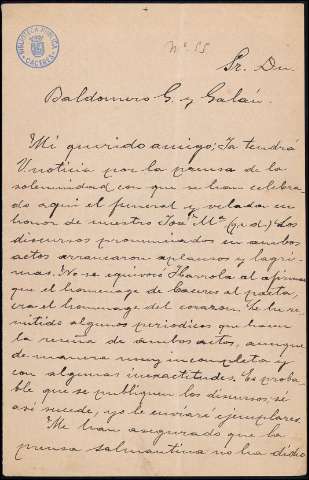 BIBLIOTECA PUBLICA
CACERES
Nº 55
Sr. Dn.
Baldomero G. y Galán.
Mi querido amigo: Ya tendrá
V. noticia por la prensa de la
solemnidad con que se han celebra-
do aquí el funeral y velada en
honor de nuestro José Mª (q. d.) Los
discursos pronunciados en ambos
actos arrancaron aplausos y lágri-
mas. No se equivocó Ibarrola al afirmar
que el homenage de Cáceres al poeta,
era el homenage del corazón. Le he re-
mitido algunos periodicos que hacen
la reseña de ambos actos, aunque
de manera muy incompleta y
con algunas inexactitudes. Es proba-
ble que se publiquen los discursos; si
así sucede, yo le enviaré ejemplares.
Me han asegurado que la
prensa salmantina no ha dicho